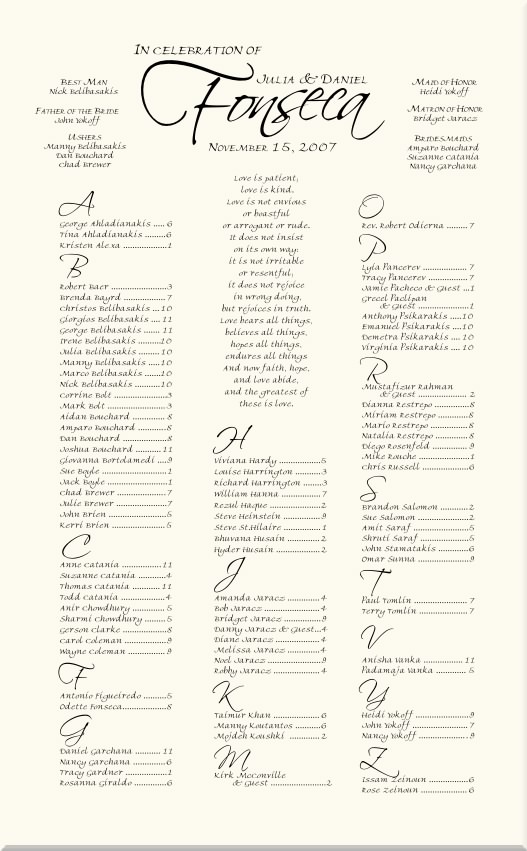 In celebration of
Julia & Daniel
Fonseca
November 15, 2007
Best Man
Nick Belibasakis
Father of the Bride
John Yokoff
Ushers
Manny Belibasakis
Dan Bouchard
Chad Brewer
Maid of Honor
Heidi Yokoff
Matron of Honor
Bridget Jaracz
Bridesmaids
Amparo Bouchard
Suzanne Catania
Nancy Garchana
A
George Ahladianakis ..... 6
Tina Ahladianakis ........6
Kristen Alexa ................1
B
Robert Baer ....................3
Brenda Bayrd ................ 7
Christos Belibasakis .... 10
Giorgios Belibasakis .... 11
George Belibasakis ...... 11
Irene Belibasakis .........10
Julia Belibasakis ......... 10
Manny Belibasakis ..... 10
Marco Belibasakis .......10
Nick Belibasakis ..........10
Corrine Bolt ...................3
Mark Bolt .....................3
Aidan Bouchard ........... 8
Amparo Bouchard .........8
Dan Bouchard ................8
Joshua Bouchard ......... 11
Giovanna Bortolamedi ...9
Sue Boyle ......................1
Jack Boyle .....................1
Chad Brewer .................. 7
Julie Brewer .................. 7
John Brien .....................5
Kerri Brien .................... 5
C
Anne Catania ...............11
Suzanne Catania ...........4
Thomas Catania .......... 11
Todd Catania ................4
Anir Chowdhury .......... 5
Sharmi Chowdhury ...... 5
Gerson Clarke ................8
Carol Coleman ...............9
Wayne Coleman ............9
F
Antonio Figueiredo ........5
Odette Fonseca...............8
G
Daniel Garchana .......... 11
Nancy Garchana ............6
Tracy Gardner ................1
Rosanna Giraldo ............6
Love is patient;
love is kind.
Love is not envious
or boastful
or arrogant or rude.
It does not insist
on its own way;
it is not irritable
or resentful,
it does not rejoice
in wrong doing,
but rejoices in truth.
Love bears all things,
believes all things,
hopes all things,
endures all things
And now faith, hope,
and love abide,
and the greatest of
these is love.
H
Viviana Hardy ................5
Louise Harrington ..........3
Richard Harrington ........3
William Hanna ............. 7
Rezul Haque .................. 2
Steve Heinstein ..............9
Steve St.Hilaire ............. 1
Bhuvana Husain ........... 2
Hyder Husain ............... 2
J
Amanda Jaracz ............. 4
Bob Jaracz ..................... 4
Bridget Jaracz ................9
Danny Jaracz & Guest...4
Diane Jaracz ..................4
Melissa Jaracz ............... 4
Noel Jaracz ....................9
Robby Jaracz ................. 4
K
Taimur Khan ................ 6
Manny Koutantos ..........6
Mojdeh Koushki ............ 2
M
Kirk McConville
& Guest ....................2
O
Rev. Robert Odierna ........ 7
P
Lyla Pancerev ................ 7
Tracy Pancerev .............. 7
Jamie Pacheco & Guest ...1
Grecel Paclipan
& Guest ....................1
Anthony Psikarakis ....10
Emanuel Psikarakis .... 10
Demetra Psikarakis .... 10
Virginia Psikarakis .... 10
R
Mustafizur Rahman
& Guest .................... 2
Dianna Restrepo ............8
Miriam Restrepo ............8
Mario Restrepo ...............8
Natalia Restrepo ............8
Diego Rosenfeld .............. 9
Mike Rouche ..................1
Chris Russell ..................6
S
Brandon Salomon ...........2
Sue Salomon ..................2
Amit Saraf .....................5
Shruti Saraf .................. 5
John Stamatakis ............6
Omar Sunna ..................9
T
Paul Tomlin .................. 7
Terry Tomlin ................. 7
V
Anisha Vanka ..............11
Padamaja Vanka ........... 5
Y
Heidi Yokoff ...................9
John Yokoff .................... 7
Nancy Yokoff ..................9
Z
Issam Zeinoun ...............6
Rose Zeinoun .................6